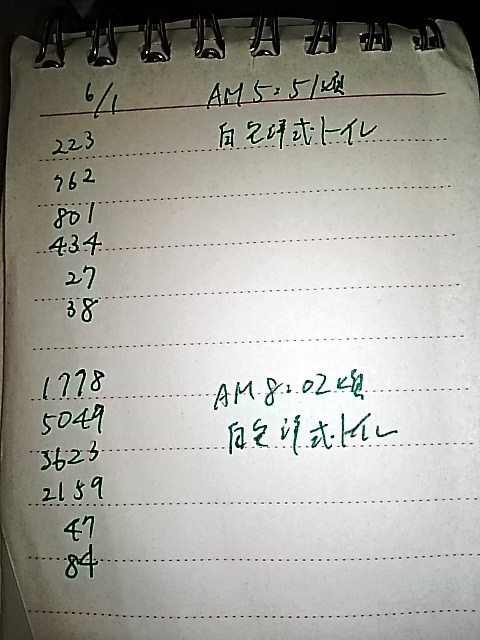 6/1 AM 5:51頃
223 自宅洋式トイレ
762
801
434
27
38
1778 AM 8:02頃
5049 自宅洋式トイレ
3623
2159
47
84